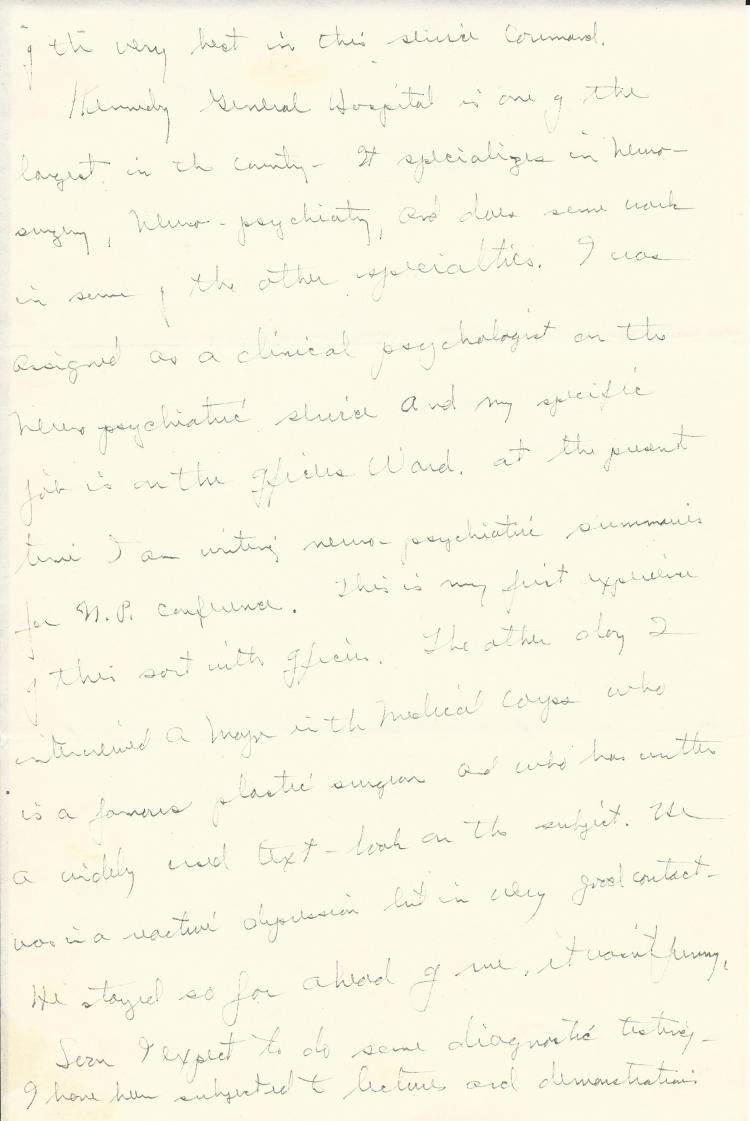 of the very best in this service Command.
Kennedy General Hospital is one of the
largest in the country - It specializes in Neuro-
surgery, Neuro-psychiatry, and does some work
in some of the other specialties. I was
assigned as a clinical psychologist on the
Neuropsychiatric service and my specific
job is on the officers Ward. At the present
time I am writing neuro-psychiatric summaries
for N.P. conference. This is my first experience
of this sort with officers. The other day I
interviewed a Major in the Medical Corps who
is a famous plastic surgeon and who has written
a widely used text-book on the subject. He
was in a reactive depression but in very good contact -
He stayed so far ahead of me, it wasn't funny.
Soon I expect to do some diagnostic testing -
I have been subjected to lectures and demonstrations